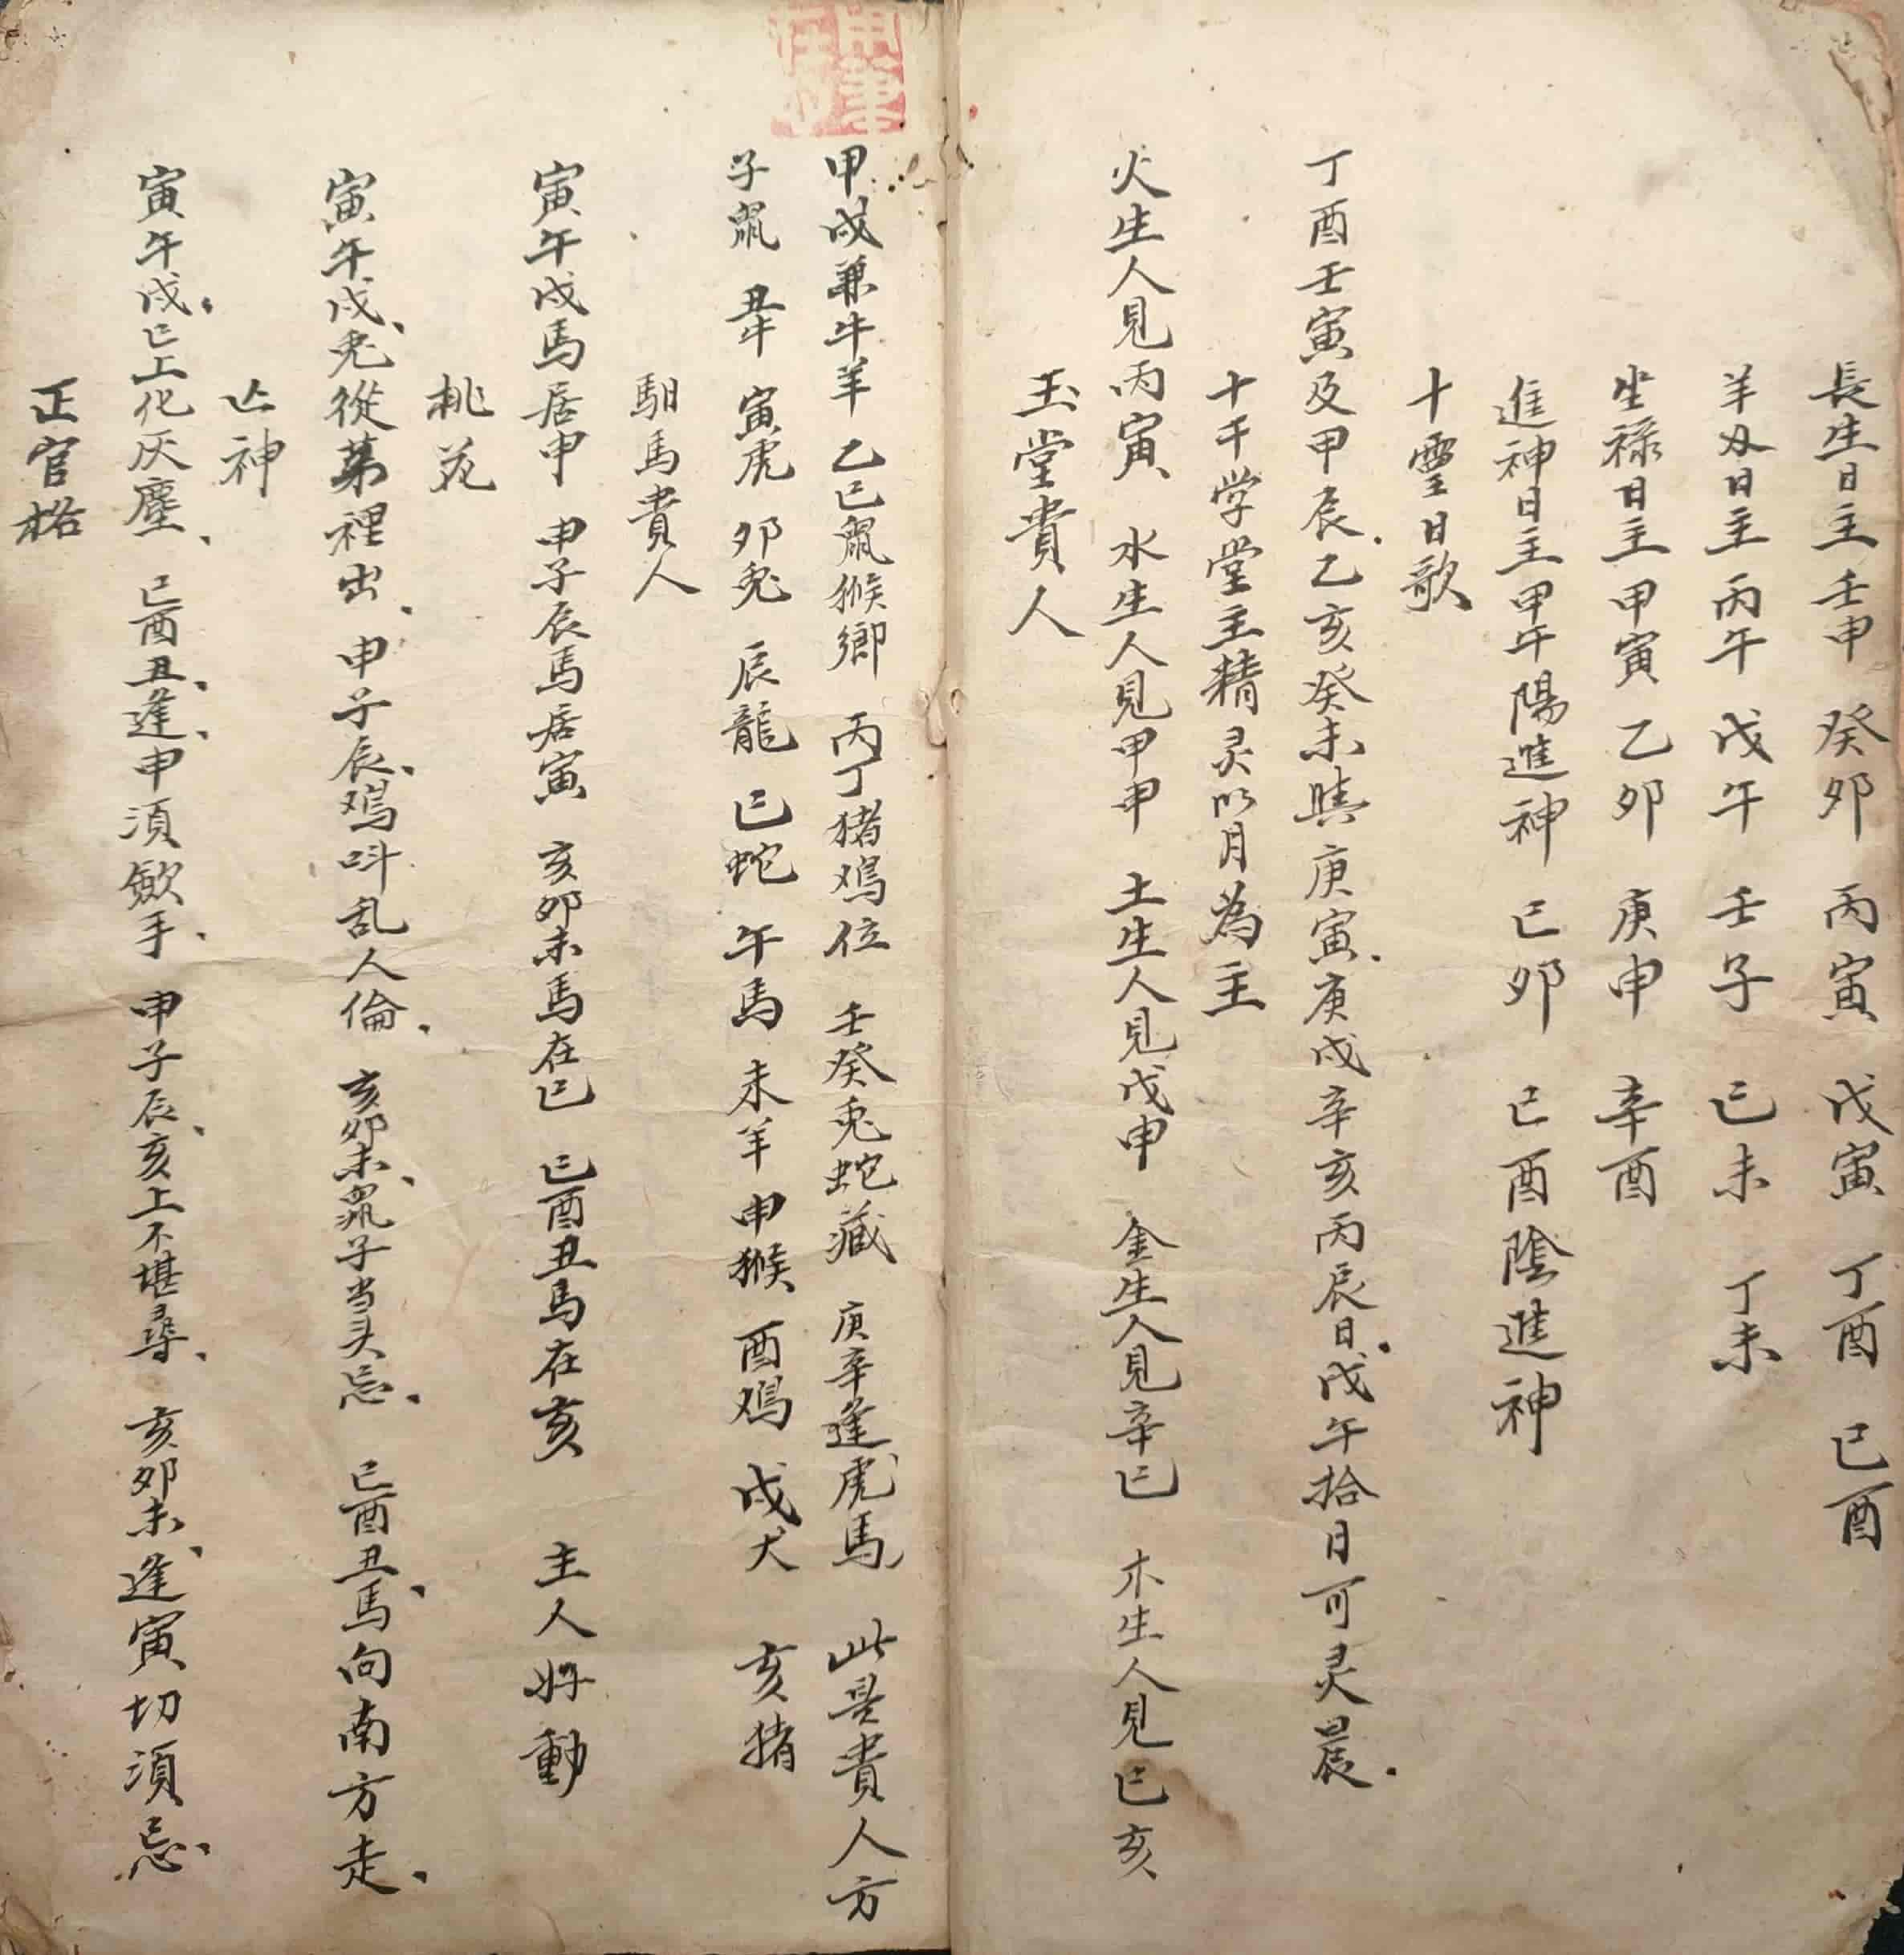 長生日主壬申 癸卯 丙寅 戊寅 丁酉 己酉
羊刃日主丙午 戊午 壬子 己未 丁未
坐祿日主甲寅 乙卯 庚申 辛酉
進神日主甲午陽進神 己卯 己酉陰進神
十靈日歌
丁酉壬寅及甲辰.乙亥癸未與庚寅.庚戌辛亥丙辰日.戊午拾日可灵晨.
十干学堂主精灵以月為主
火生人見丙寅 水生人見甲申 土生人見戊申 金生人見辛巳 木生人見己亥
玉堂貴人
甲戊兼牛羊 乙己鼠猴鄉 丙丁猪鸡位 壬癸兎蛇藏 庚辛逢虎馬 此是貴人方
子鼠 丑牛 寅虎 卯兎 辰龍 巳蛇 午馬 未羊 申猴 酉鸡 戌犬 亥猪
馹馬貴人
寅午戌馬居申 申子辰馬居寅 亥卯未馬在巳 巳酉丑馬在亥 主人好動
桃花
寅午戌、兎從茅裡出、申子辰、鸡呌乱人倫、亥卯未、鼠子当头忌、巳酉丑、馬向南方走、
亡神
寅午戌、巳上化灰塵、巳酉丑、逢、申須歛手、申子辰、亥上不堪尋、亥卯未、逢寅切須忌、
正官格